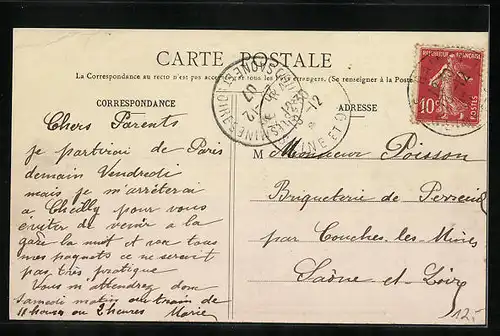 CARTE POSTALE
La Correspondance au recto n'est pas acceptée par tous les pays étrangers. (Se renseigner à la Poste
CORRESPONDANCE
ADRESSE
Chers Parents
je partirai de Paris
demain Vendredi
mais je m'arréterai
a Cheilly pour vous
eviter de venir a la
gare la nuit et vec tous
mes paquets ce ne serait
pas très pratique
Vous m attendrez donc
samedi matin au train de
11 heures ou 2 heures Marie
M Monsieur Poisson
Briqueterie de Perreuil
par Couches les Mines
Saône et Loire
10c
POSTES
12.-